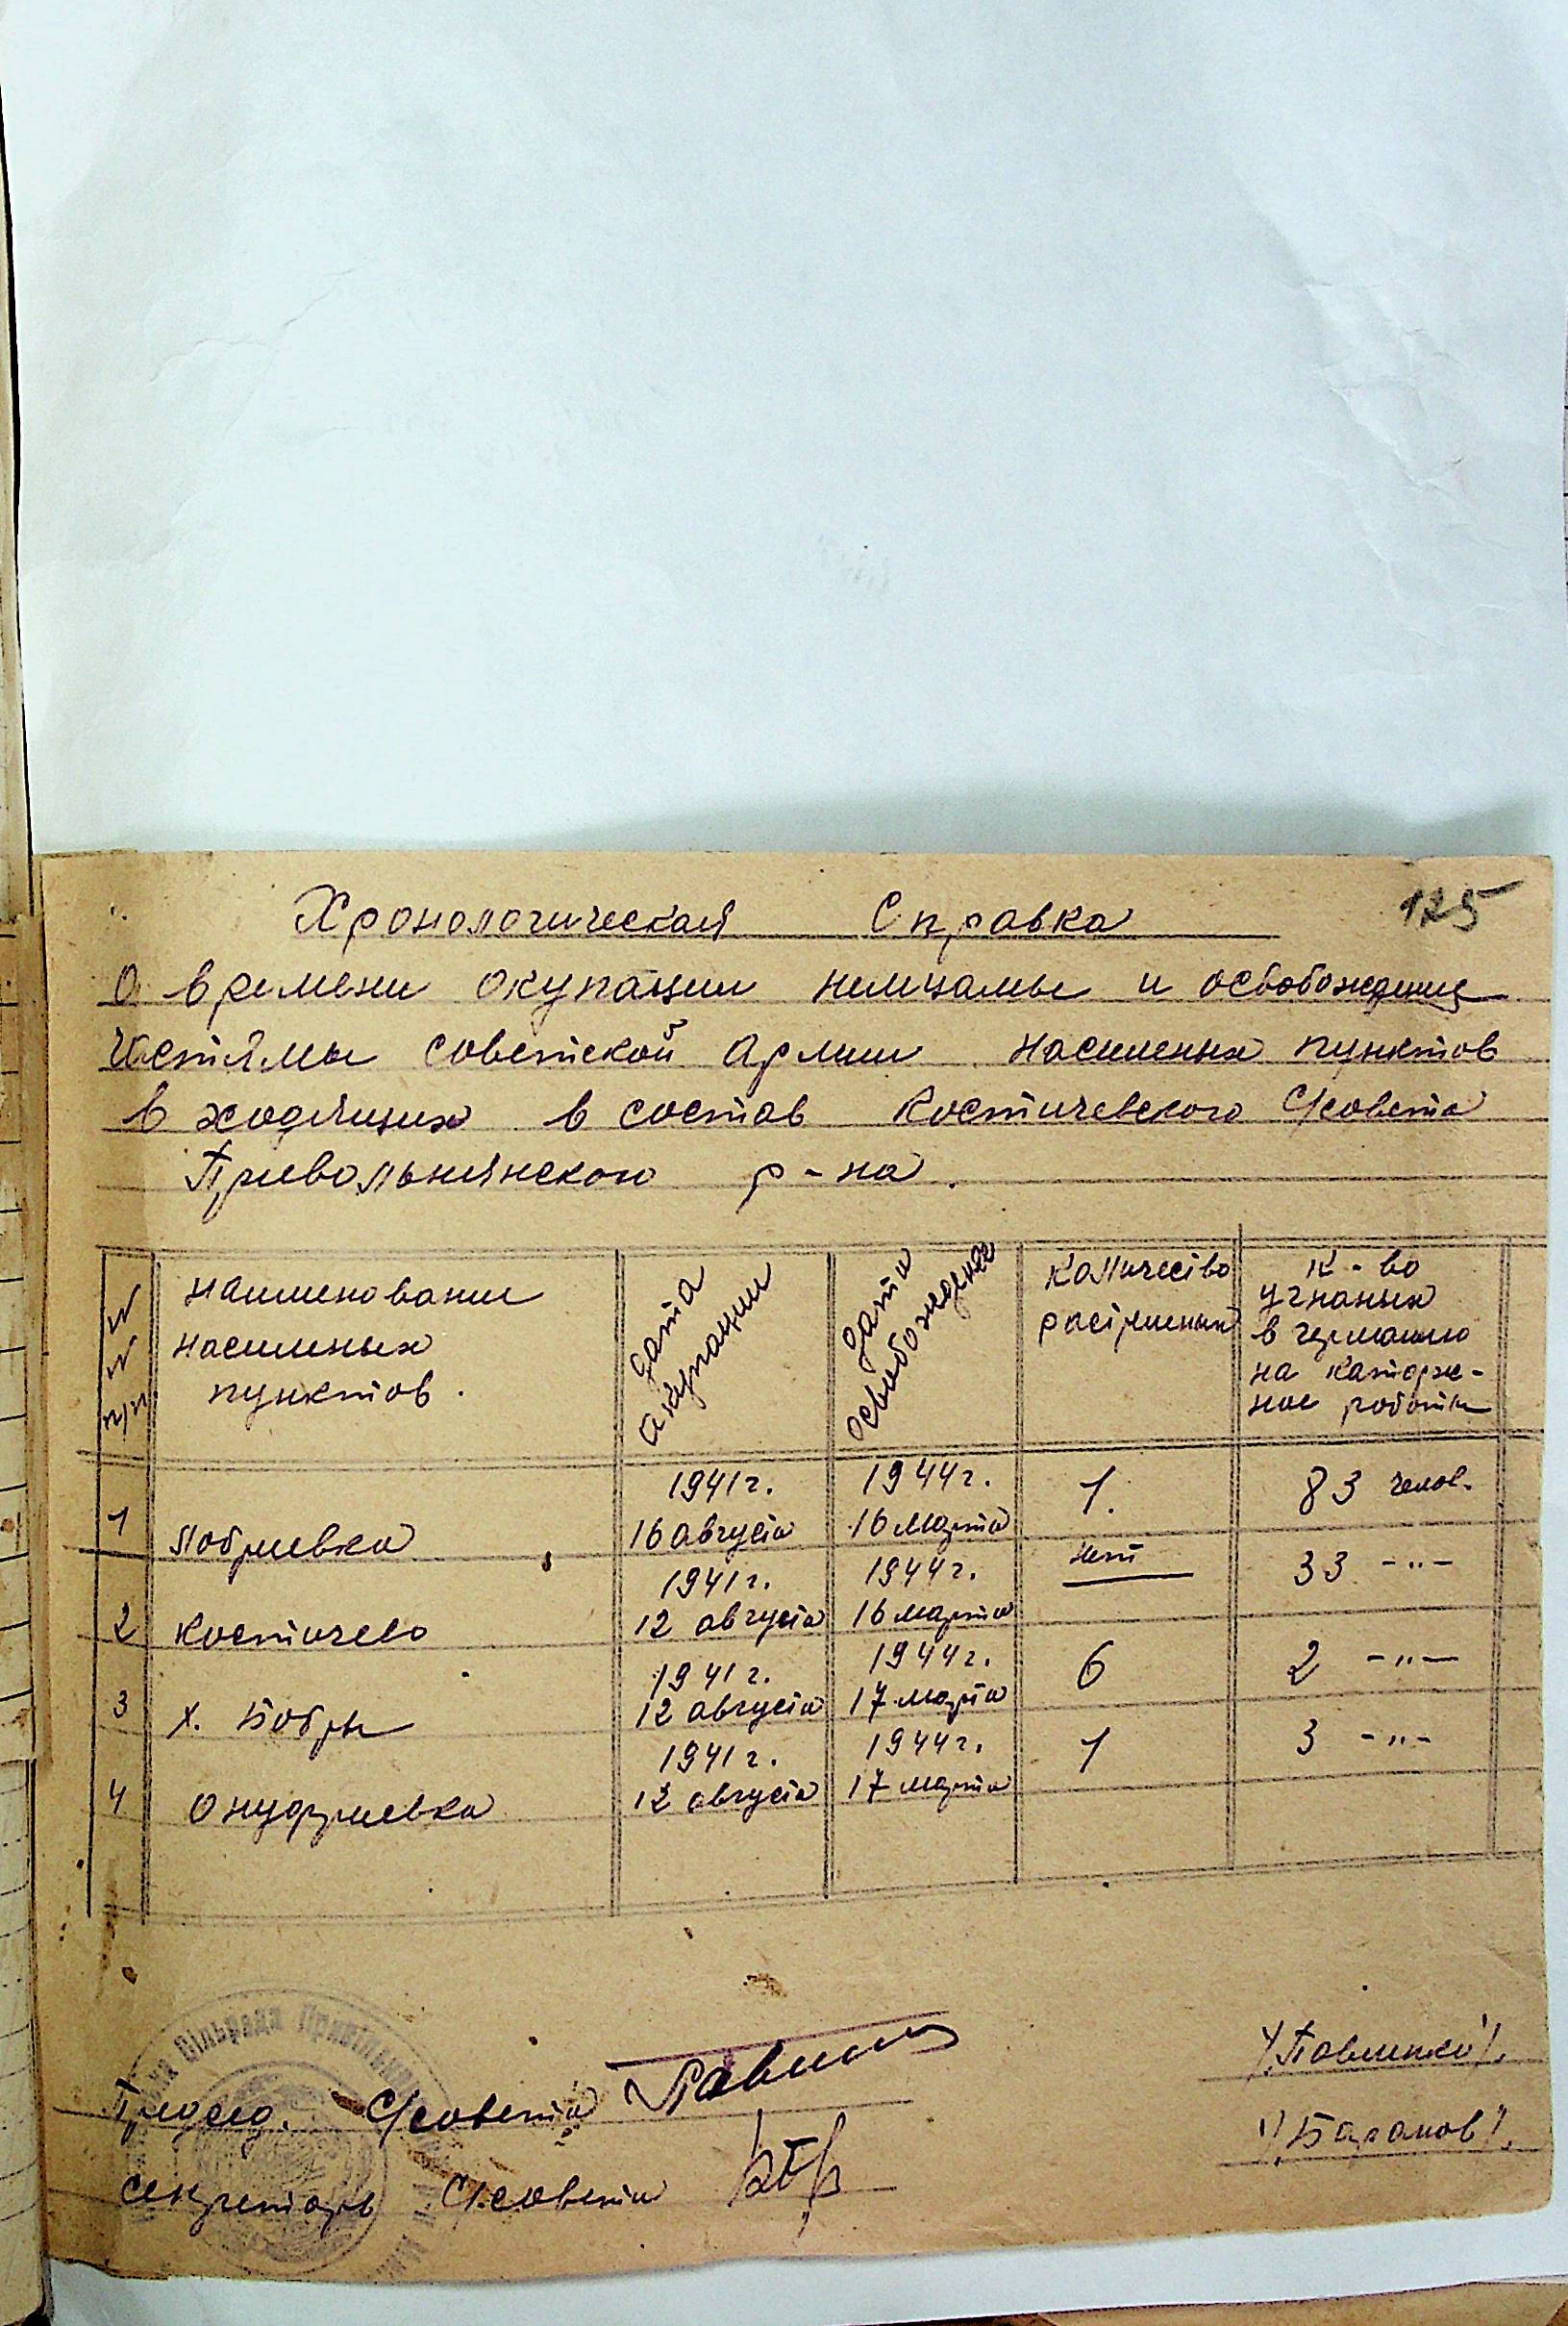 125
Хронологическая Справка
О времени окупации немцамы и освобождения
Частямы советской Армии населеных пунктов
в ходящих в состав Костичевского С/совета
Привольнянского р-на.
N N п/п
Наименования населенных пунктов.
дата акупации
дата освобождения
Количество растреленых
К-во угнаных в германию на каторжные работы
1 Добриевка 1941г. 16 августа 1944г. 16 марта 1. 83 челов.
2 Костичево 1941г. 12 августа 1944г. 16 марта нет 33 -"-
3 х. Бобры 1941г. 12 августа 1944г. 17 марта 6 2 -"-
4 Онуфриевка 1941г. 12 августа 1944г. 17 марта 1 3 -"-
Председ. С/совета Павленко /Павленко/.
секретарь С/совета /Баранов/.
Сільрада